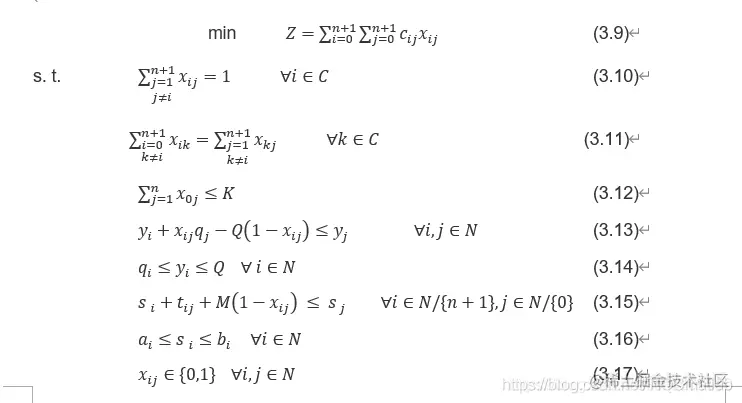 min Z = ∑_{i=0}^{n+1} ∑_{j=0}^{n+1} c_{ij} x_{ij} (3.9)↵
s. t. ∑_{j=1, j≠i}^{n+1} x_{ij} = 1 ∀i ∈ C (3.10)↵
∑_{i=0, k≠i}^{n+1} x_{ik} = ∑_{j=1, k≠i}^{n+1} x_{kj} ∀k ∈ C (3.11)↵
∑_{j=1}^{n} x_{0j} ≤ K (3.12)↵
y_i + x_{ij} q_j − Q(1 − x_{ij}) ≤ y_j ∀i, j ∈ N (3.13)↵
q_i ≤ y_i ≤ Q ∀ i ∈ N (3.14)↵
s_i + t_{ij} + M(1 − x_{ij}) ≤ s_j ∀i ∈ N/{n + 1}, j ∈ N/{0} (3.15)↵
a_i ≤ s_i ≤ b_i ∀i ∈ N (3.16)↵
x_{ij} ∈ {0,1} ∀i, j ∈ N (3.17)↵
@稀土掘金技术社区